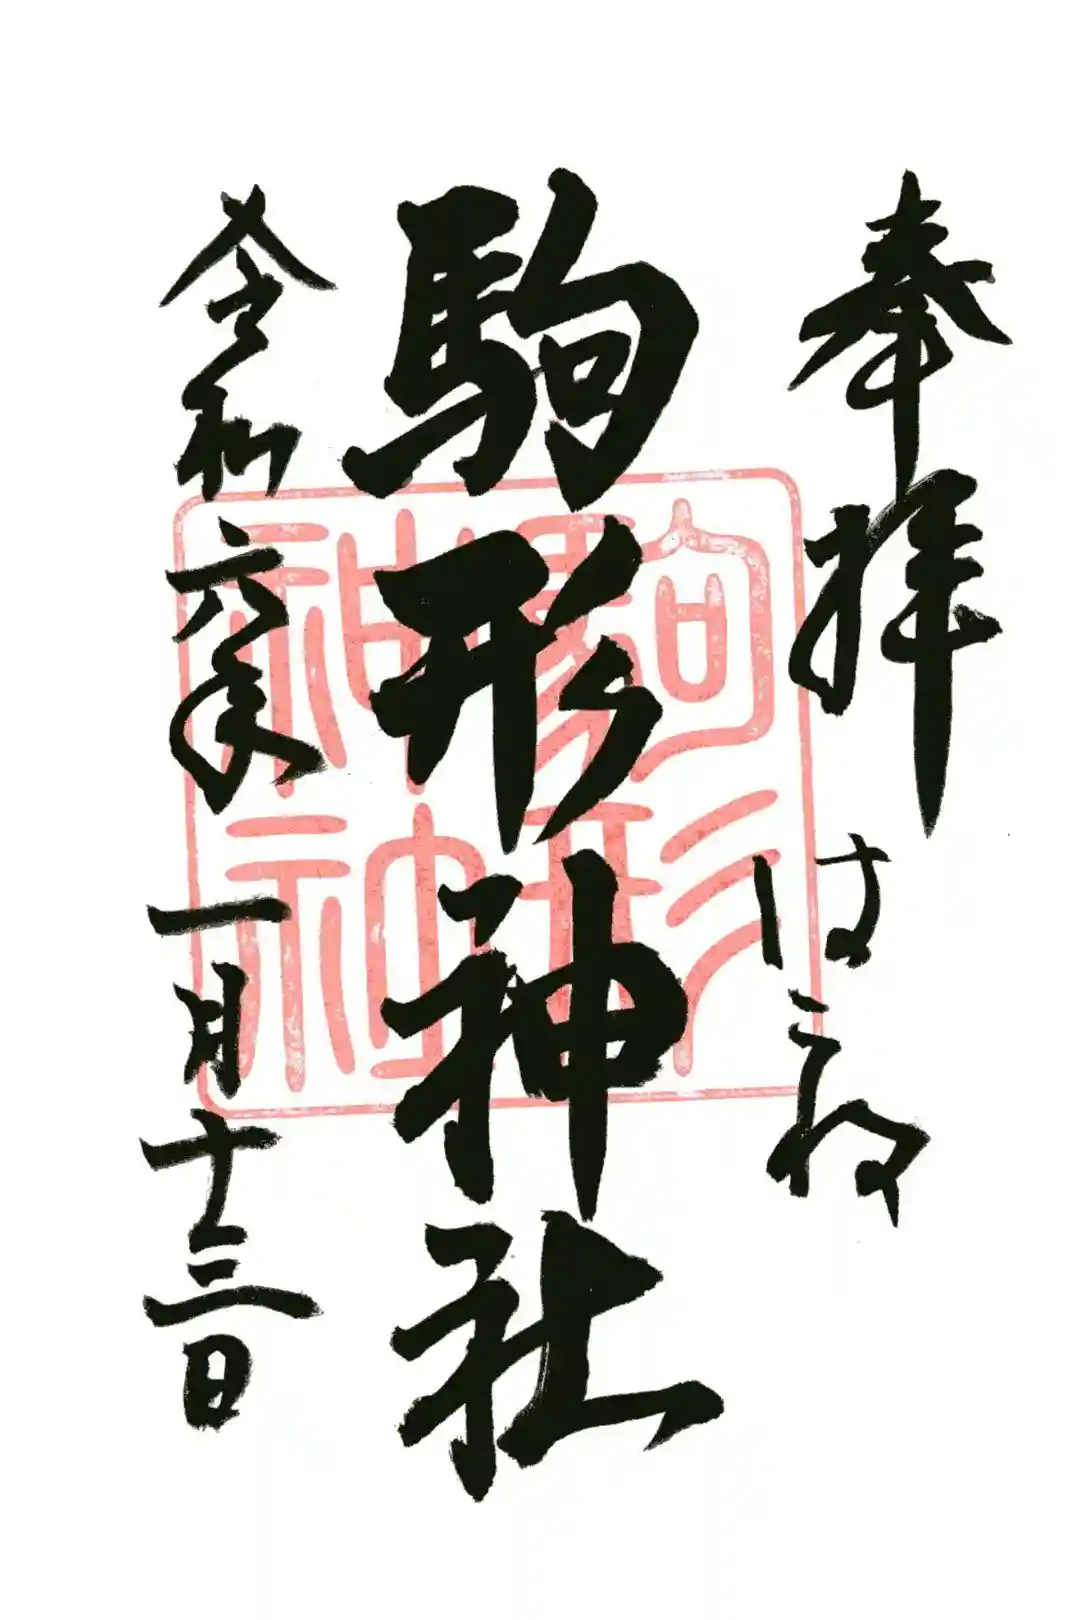 奉拝 はこね
駒形神社
令和六年一月十三日
駒形
神社